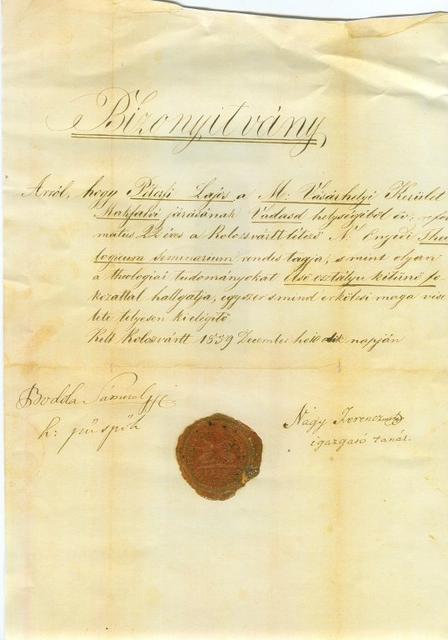 Bizonyitvány
Arról, hogy Péterfi Lajos a M. Vásárhelyi Kerület
Makfalvi járásának Vadasd helységiből ev. refor
mátus 22 éves a Kolozsvártt létező N. Enyedi Theo
logicum Seminarium rendes tagja, s mint olyan
a theologiai tudományokat első osztályu kitünő fo
kozattal hallgatja, egyszersmind erkölcsi maga vise
lete teljesen kielégitő
Kelt Kolozsvártt 1859 December hó napján
Bodola Sámuel
h: püspök
Nagy Ferencz
igazgató tanár